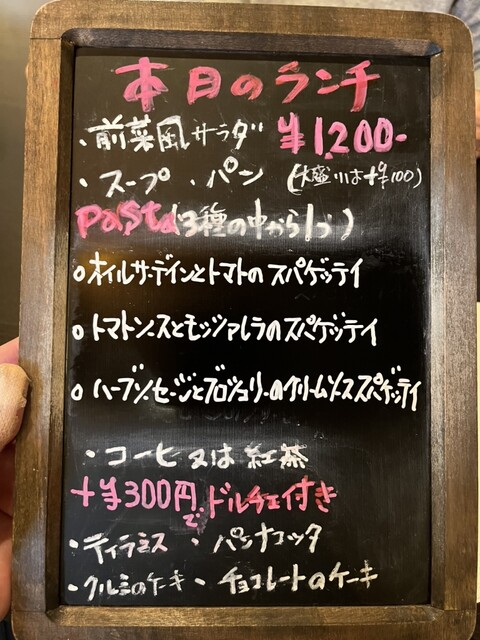 本日のランチ
・前菜風サラダ ¥1,200-
・スープ ・パン (大盛りは+¥100)
Pasta(3種の中から1つ)
○オイルサーディンとトマトのスパゲッティ
○トマトソースとモッツァレラのスパゲッティ
○ハーブソーセージとブロッコリーのクリームソーススパゲッティ
・コーヒー又は紅茶
+¥300円でドルチェ付き
・ティラミス ・パンナコッタ
・クルミのケーキ ・チョコレートのケーキ